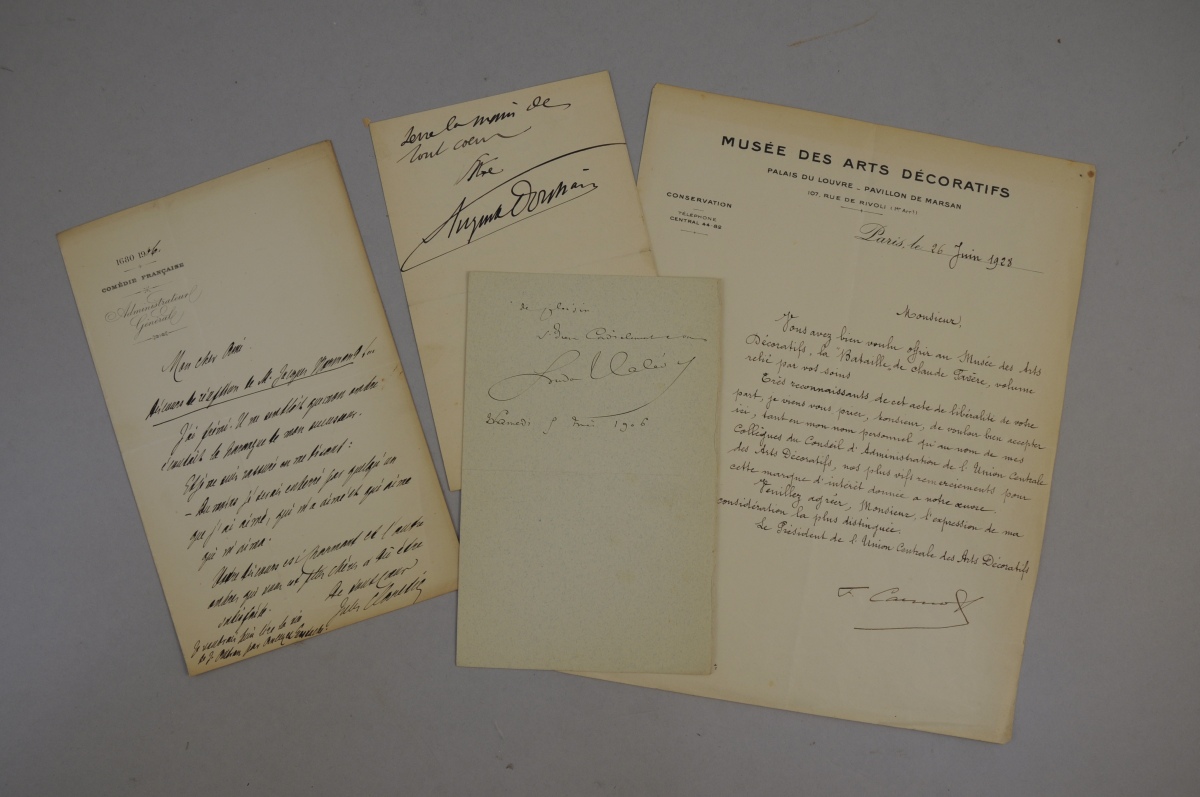 1680 19
COMÉDIE FRANÇAISE
Administrateur
Général
Mon cher Ami
Discours de réception de M. Jacques Normand
J'ai frémi. Il me semblait que mon ombre
écoutait la harangue de mon successeur.
Et je me suis rassuré en me disant :
- Au moins je serais enterré par quelqu'un
que j'ai aimé, qui m'a aimé et qui
qui m'aima.
Votre discours est charmant et
qui vous est chère a dû être
satisfaite.
De tout cœur
Jules Claretie
Je voudrais bien lire la vie
serre la main de
tout cœur
Votre
Auguste Dorchain
de plaisir
Samedi 5 Mai 1906
MUSÉE DES ARTS DÉCORATIFS
PALAIS DU LOUVRE - PAVILLON DE MARSAN
107, RUE DE RIVOLI (1er Arrt)
CONSERVATION
TÉLÉPHONE
CENTRAL 44-82
Paris, le 26 Juin 1923
Monsieur,
Vous avez bien voulu offrir au Musée des Arts
Décoratifs, la "Bataille" de Claude Farère, volume
relié par vos soins
Très reconnaissants de cet acte de libéralité de votre
part, je viens vous prier, Monsieur, de vouloir bien accepter
ici, tant en mon nom personnel qu'au nom de mes
Collègues du Conseil d'Administration de l'Union Centrale
des Arts Décoratifs, nos plus vifs remerciements pour
cette marque d'intérêt donnée à notre œuvre.
Veuillez agréer, Monsieur, l'expression de ma
considération la plus distinguée.
Le Président de l'Union Centrale des Arts Décoratifs
F. Carnot